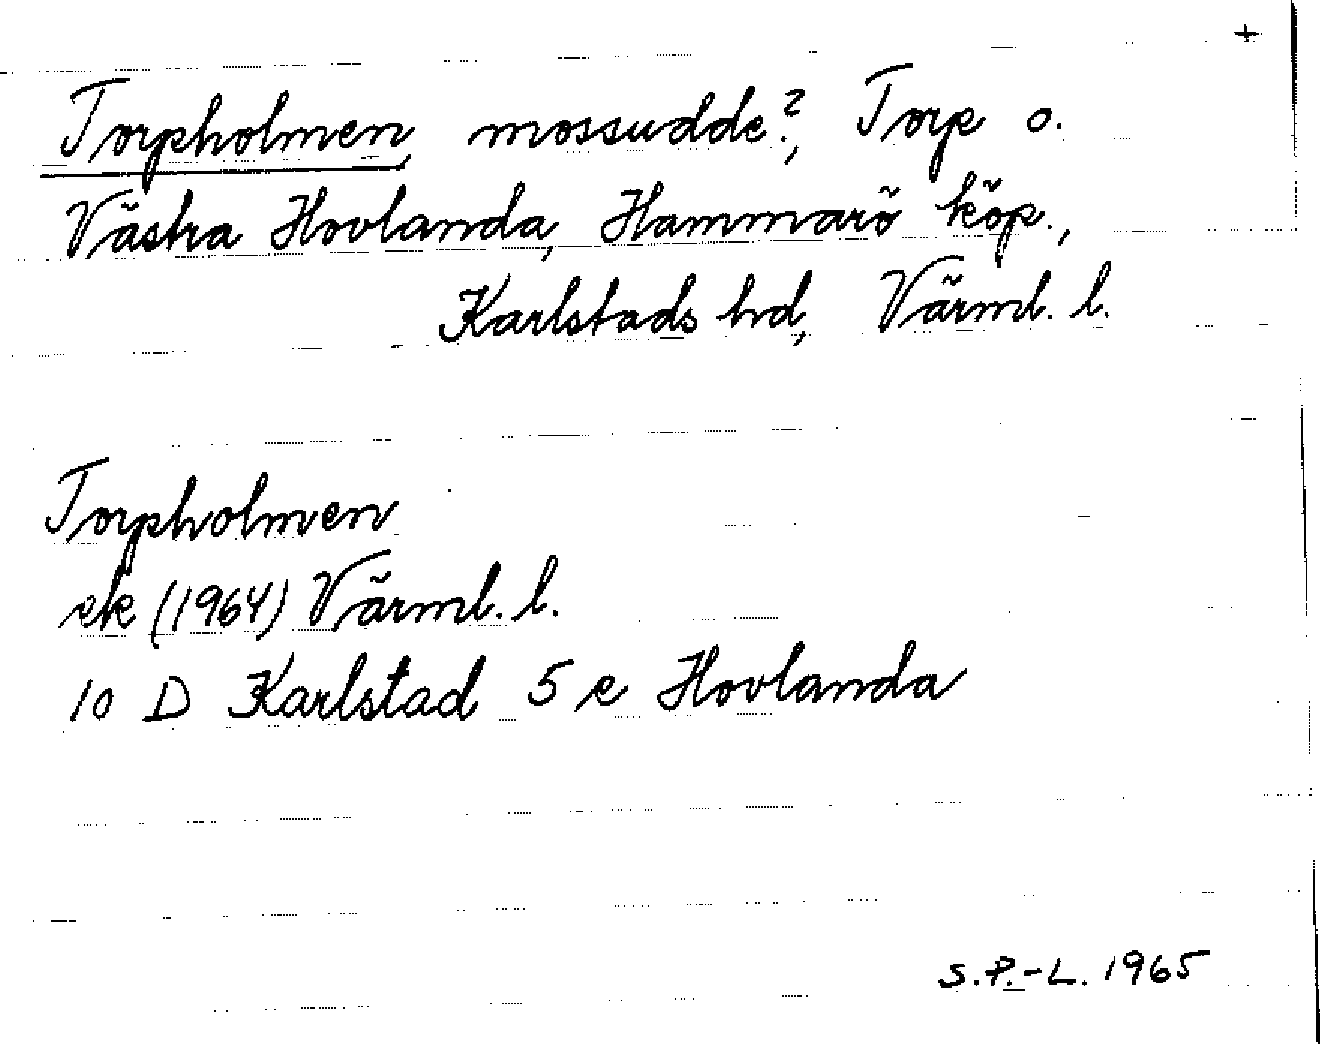 +
Torpholmen, mossudde?, Torp o.
Västra Hovlanda, Hammarö köp.,
Karlstads hd, Värml. l.
Torpholmen
ek (1964) Värml. l.
10 D Karlstad 5 e Hovlanda
S.P.-L. 1965